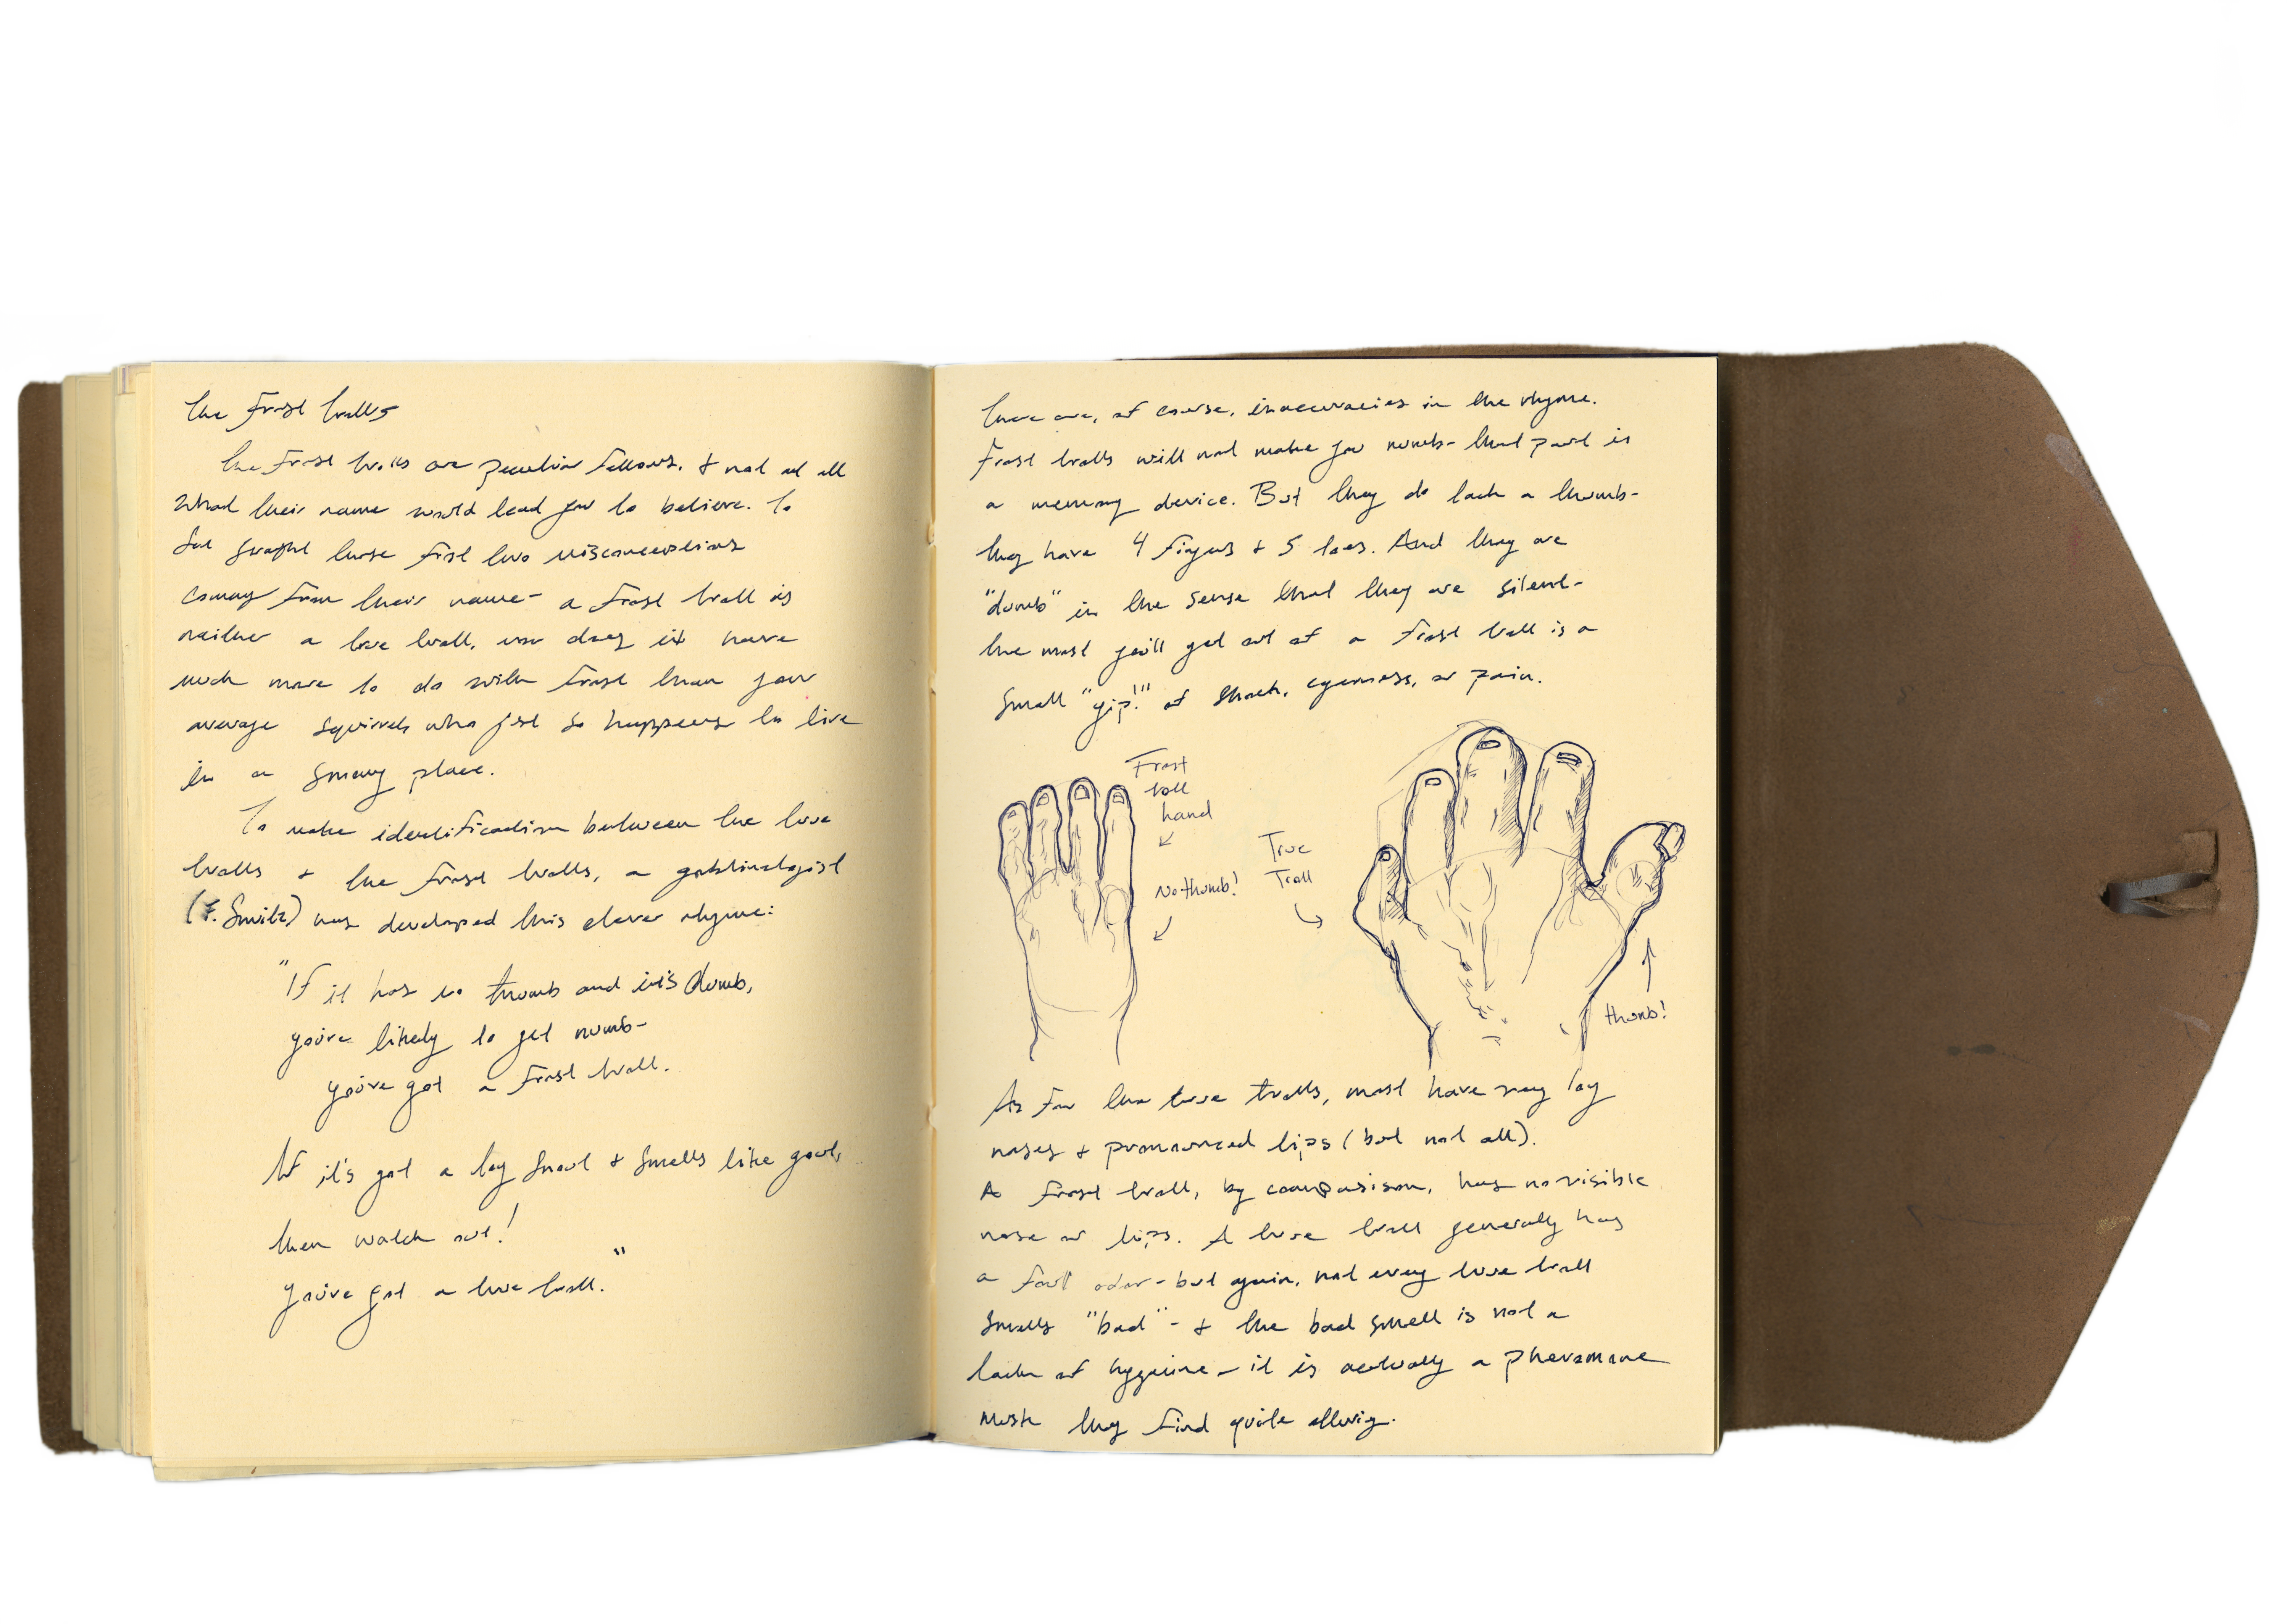 The Frost Trolls
The Frost trolls are peculiar fellows, & not at all
what their name would lead you to believe. To
set straight these first two misconceptions
coming from their name - a frost troll is
neither a true troll, nor does it have
much more to do with frost than your
average squirrel who just so happens to live
in a snowy place.
To make identification between the true
trolls & the frost trolls, a goblinologist
(F. Smith) has developed this clever rhyme:
"If it has no thumb and it's dumb,
you're likely to get numb-
you've got a frost troll.
If it's got a long snout & smells like gout,
then watch out!
You've got a true troll."
There are, of course, inaccuracies in the rhyme.
Frost trolls will not make you numb - that part is
a memory device. But they do lack a thumb-
they have 4 fingers & 5 toes. And they are
"dumb" in the sense that they are silent-
the most you'll get out of a frost troll is a
small "yip!" of shock, eagerness, or pain.
Frost
troll
hand
No thumb!
True
Troll
thumb!
As for the true trolls, most have very long
noses & pronounced lips (but not all).
A frost troll, by comparison, has no visible
nose or lips. A true troll generally has
a foul odor - but again, not every true troll
smells "bad" - & the bad smell is not a
lack of hygeine - it is actually a pheromone
musk they find quite alluring.